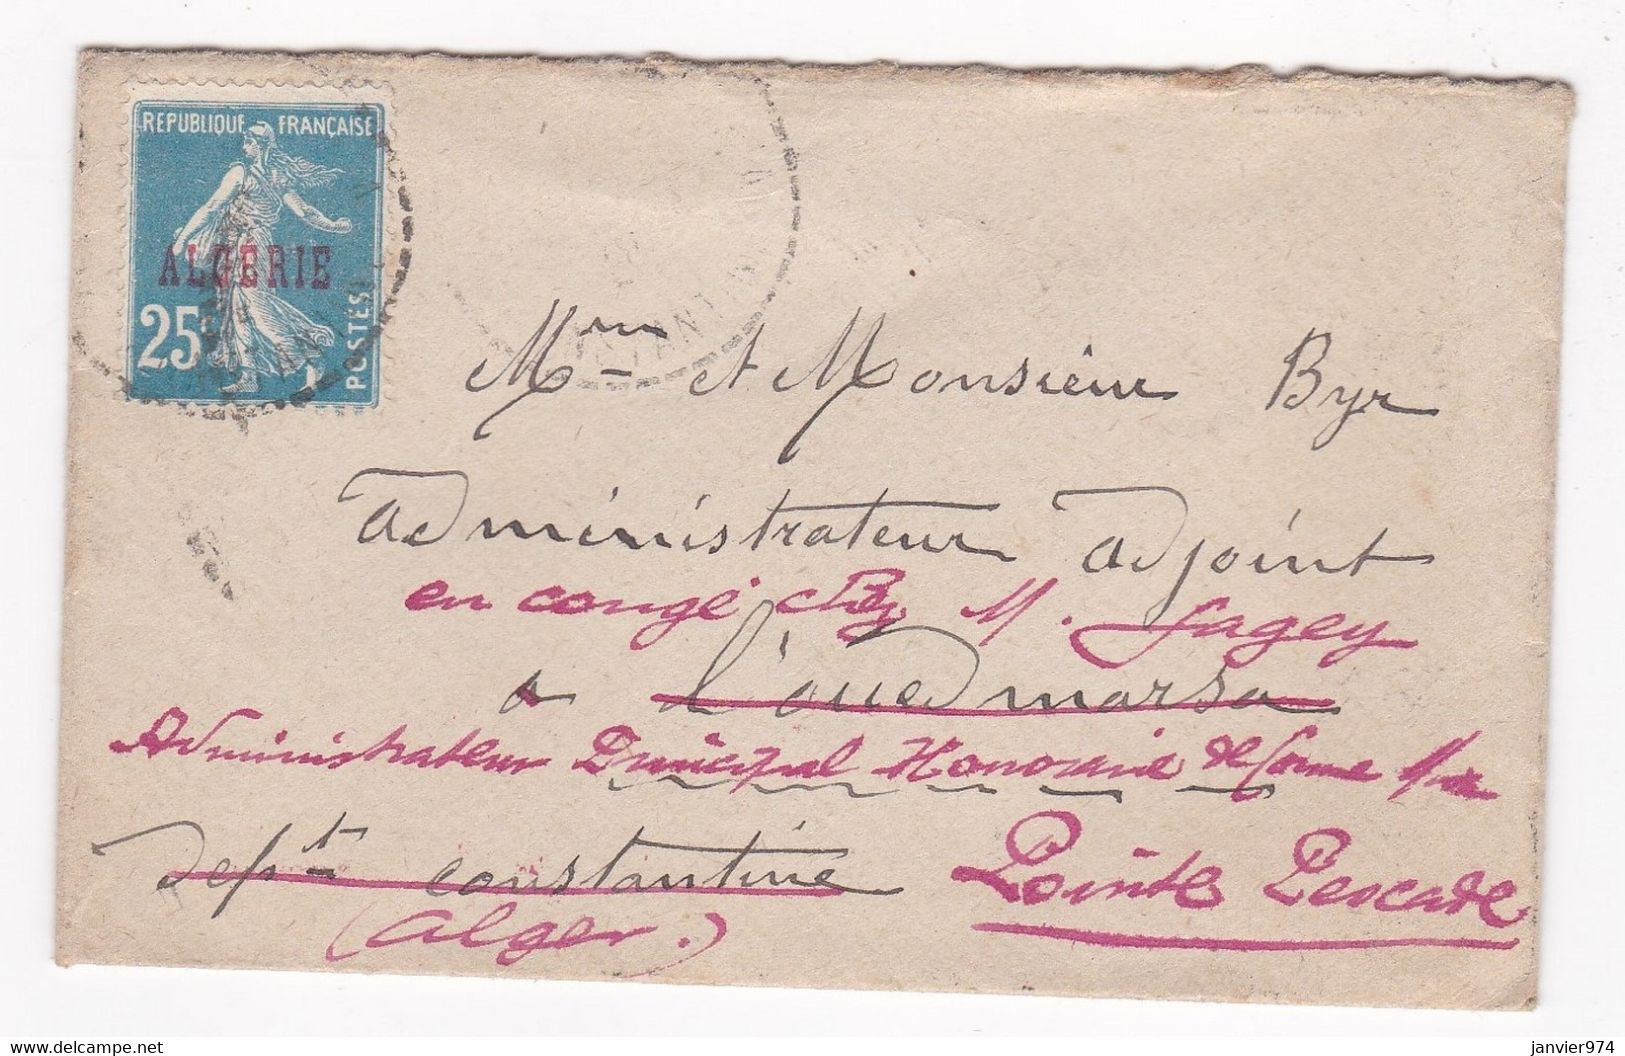 REPUBLIQUE FRANÇAISE
ALGERIE
25
POSTES
Mme et Monsieur Byr
administrateur adjoint
en congé chez M. Sagey
a l'oued marsa
Administrateur Principal Honoraire de Comne Mxte
dept constantine Pointe Pescade
(alger.)
www.delcampe.net
janvier974